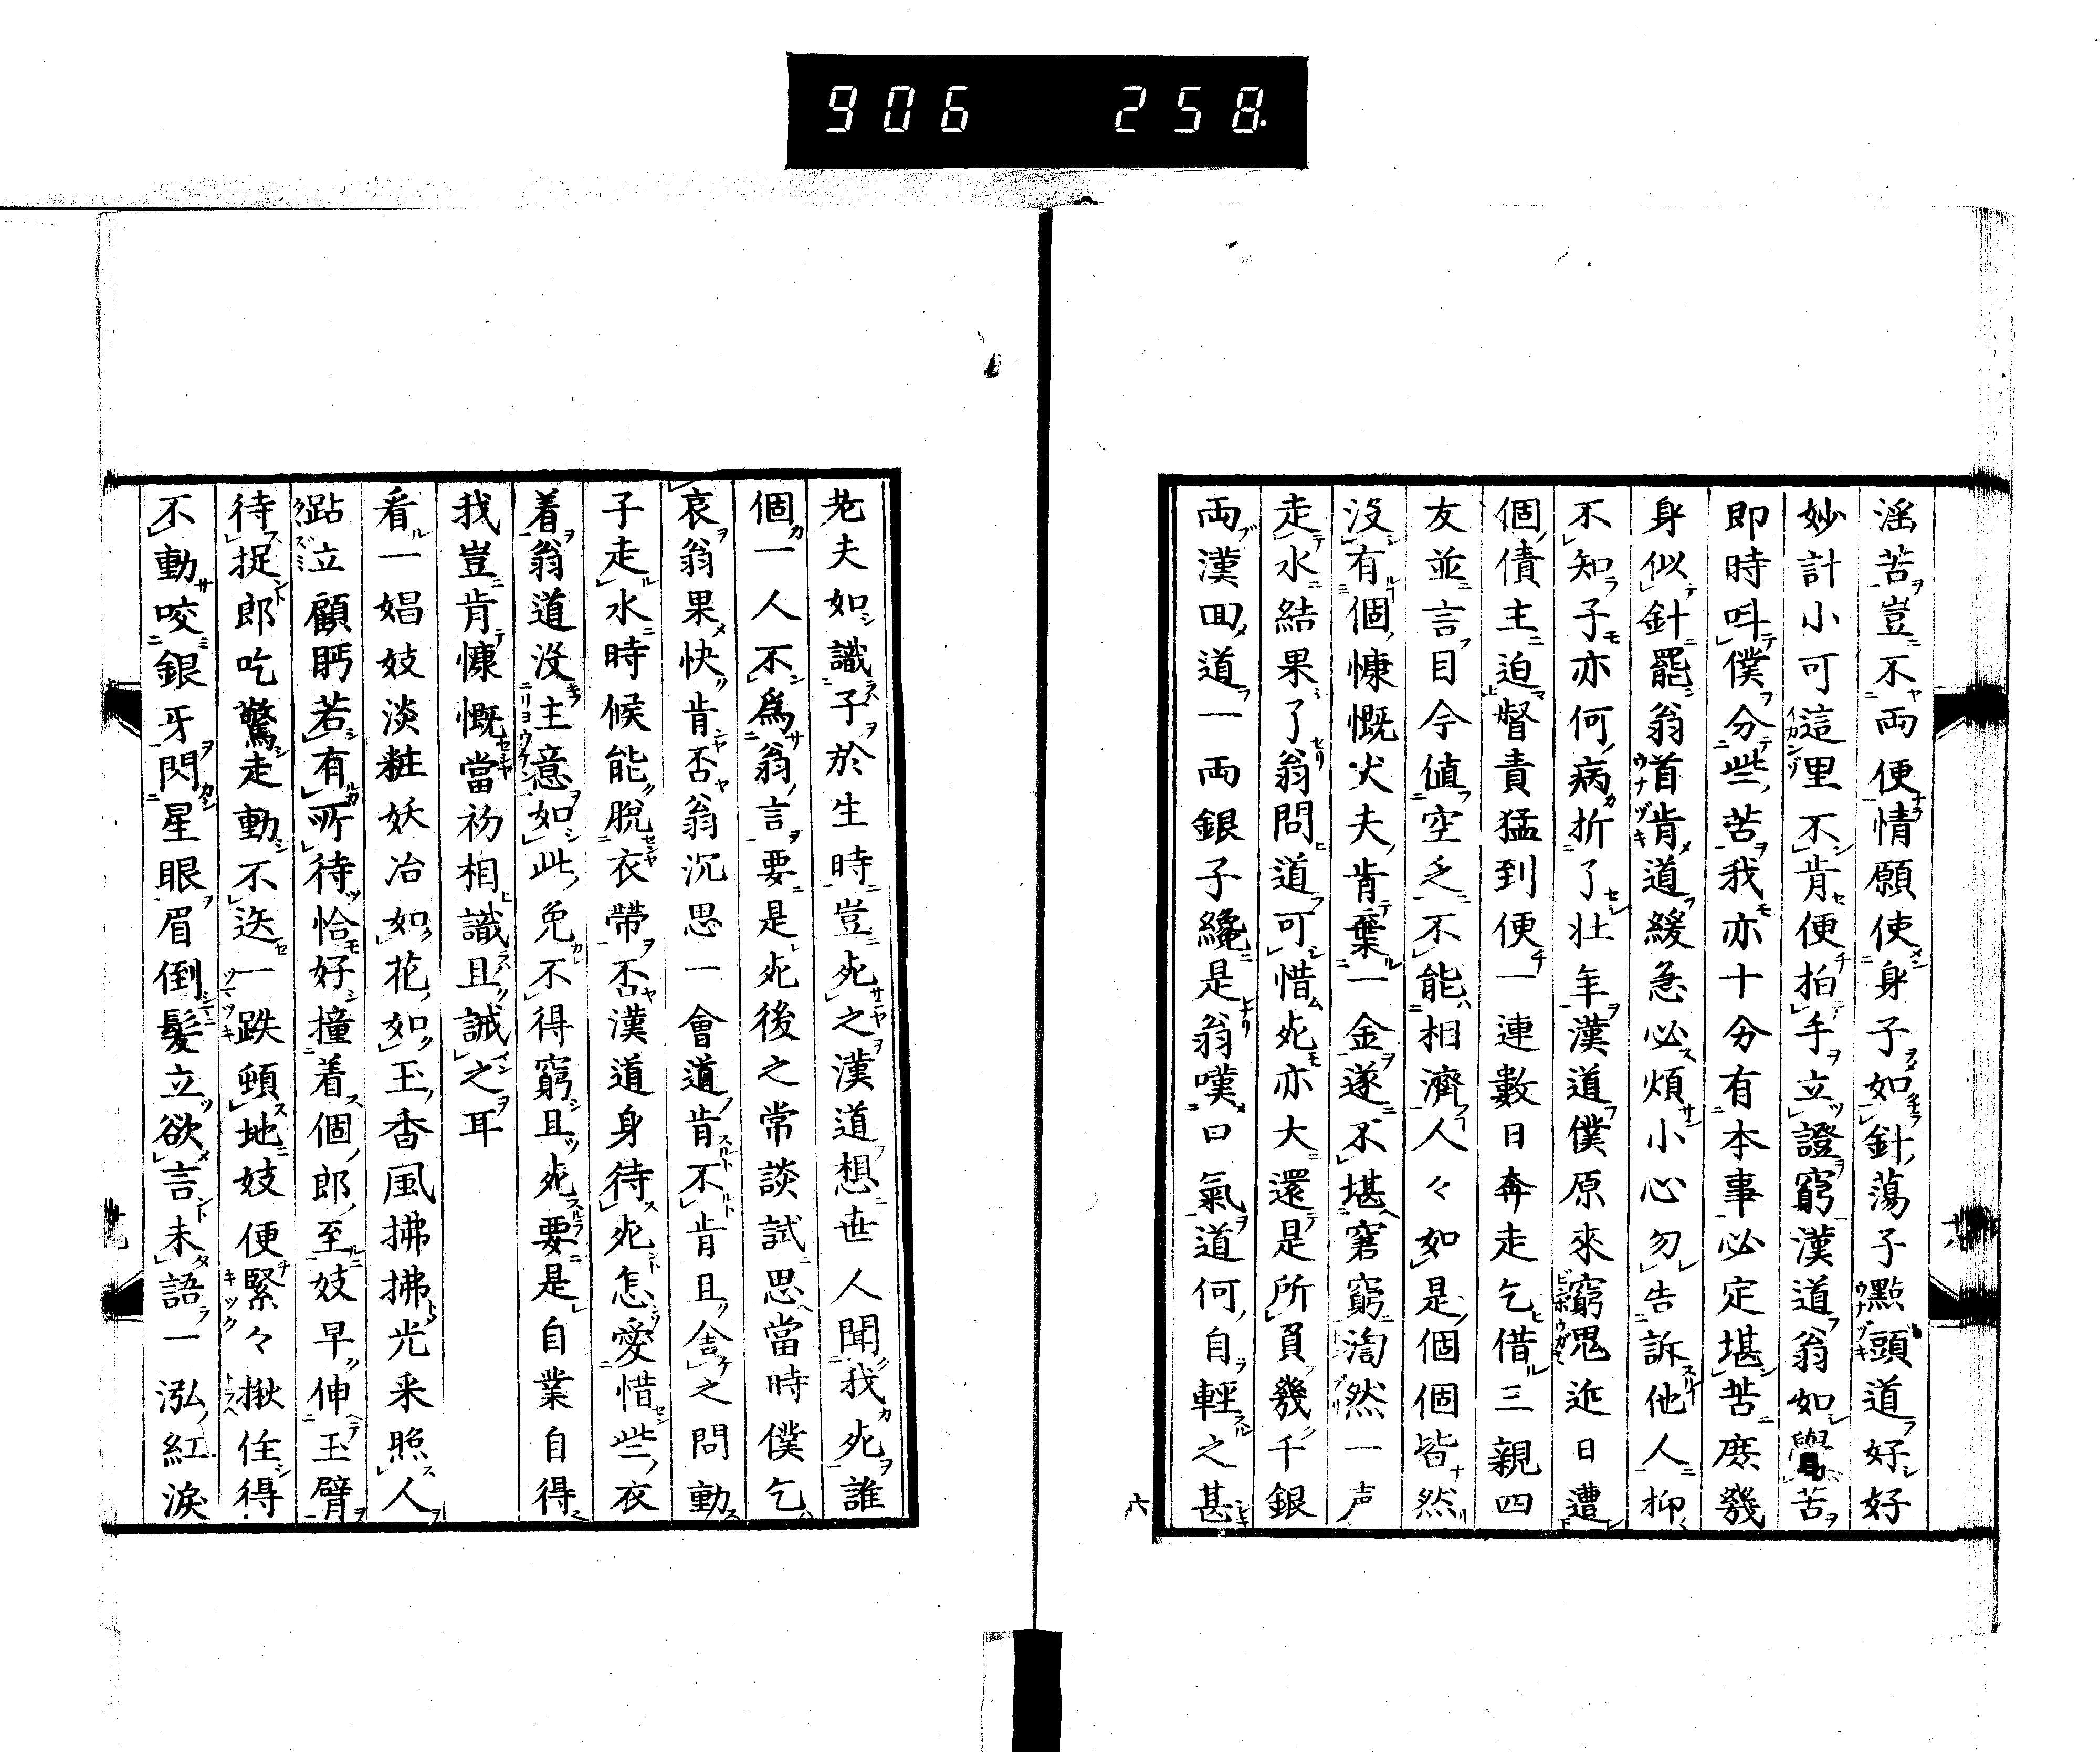 906 258
淫苦豈不両便情願使身子如針蕩子點頭道好好
妙計小可這里不肯便拍手立證窮漢道翁如嘗苦
即時呌僕分些苦我亦十分有本事必定堪苦庶幾
身似針罷翁首肯道緩急必煩小心勿告訴他人抑
不知子亦何病折了壮年漢道僕原來窮鬼近日遭
個債主迫督責猛到便一連數日奔走乞借三親四
友並言目今値空乏不能相濟人々如是個個皆然
没有個慷慨丈夫肯棄一金遂不堪窘窮渹然一声
走水結果了翁問道可惜死亦大還是所負幾千銀
両漢回道一両銀子纔是翁嘆口氣道何自輕之甚
六
老夫如識子於生時豈死之漢道想世人聞我死誰
個一人不爲翁言要是死後之常談試思當時僕乞
哀翁果快肯否翁沉思一會道肯不肯且舎之問動
子走水時候能脱衣帶否漢道身待死怎愛惜些衣
着翁道没主意如此免不得窮且死要是自業自得
我豈肯慷慨當初相識且誡之耳
看一娼妓淡粧妖冶如花如玉香風拂拂光采照人
跕立顧眄若有所待恰好撞着個郎至妓早伸玉臂
待捉郎吃驚走動不迭一跌頓地妓便緊々揪住得
不動咬銀牙閃星眼眉倒髮立欲言未語一泓紅淚